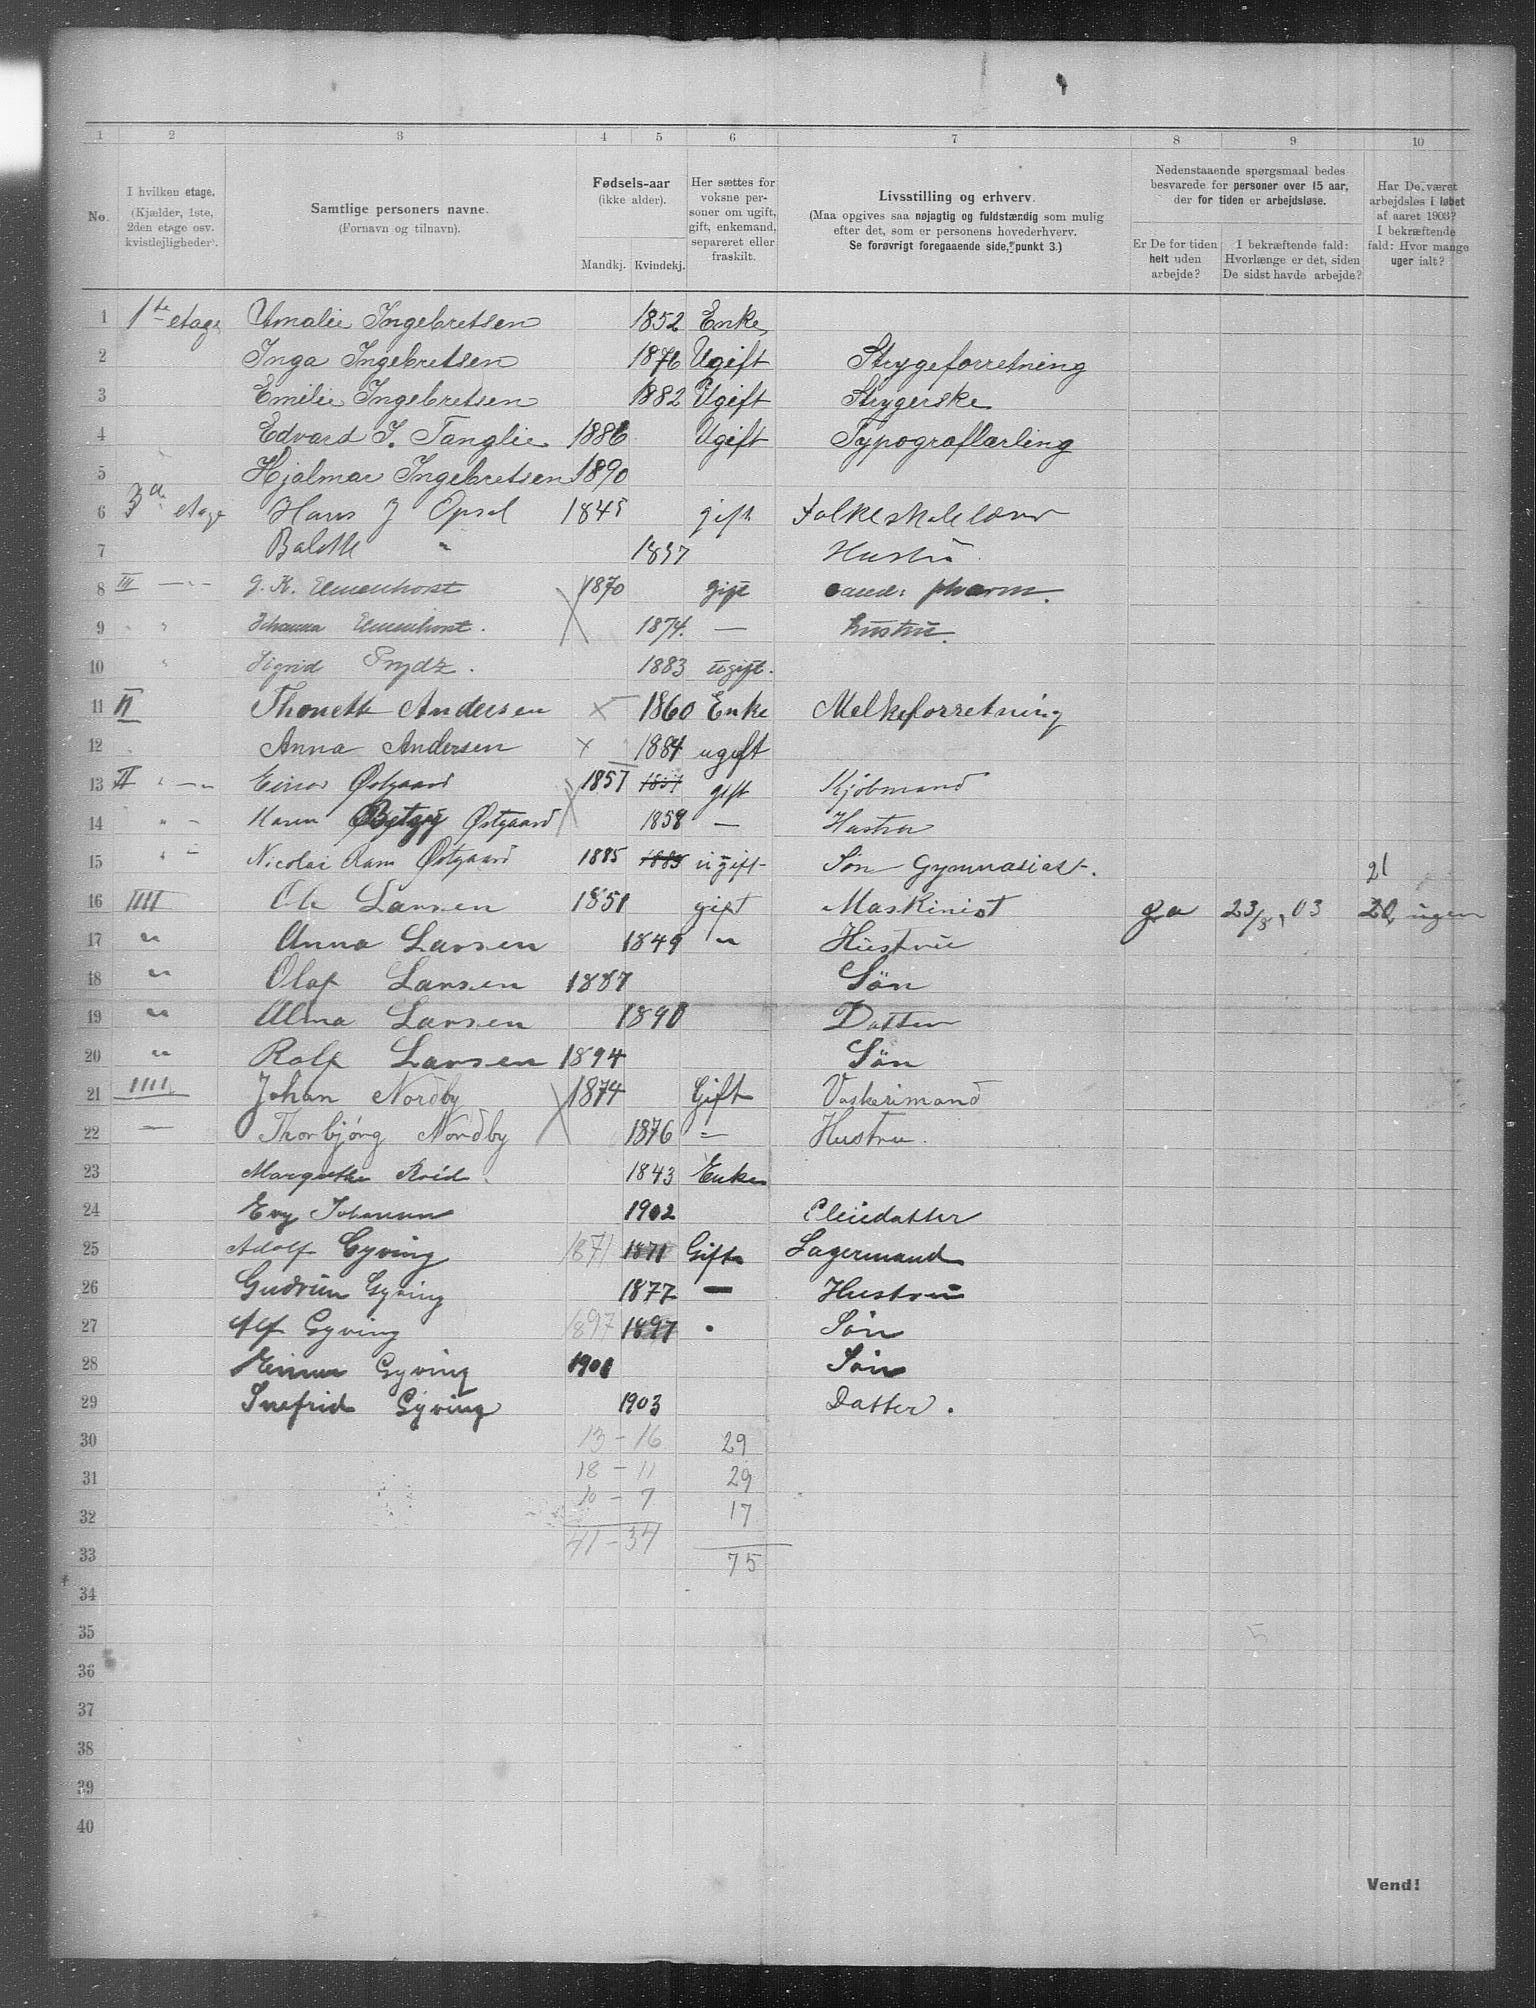 1 2 3 4 5 6 7 8 9 10
No. I hvilken etage. (Kjælder, 1ste, 2den etage osv. kvistlejligheder). Samtlige personers navne. (Fornavn og tilnavn). Fødsels-aar (ikke alder). Mandkj. Kvindekj. Her sættes for voksne personer om ugift, gift, enkemand, separeret eller fraskilt. Livsstilling og erhverv. (Maa opgives saa nøjagtig og fuldstændig som mulig efter det, som er personens hovederhverv. Se forøvrigt foregaaende side, punkt 3.) Nedenstaaende spørgsmaal bedes besvarede for personer over 15 aar, der for tiden er arbejdsløse. Er De for tiden helt uden arbejde? I bekræftende fald: Hvorlænge er det, siden De sidst havde arbejde? Har De været arbejdsløs i løbet af aaret 1903? I bekræftende fald: Hvor mange uger ialt?
1 1te etage Amalie Ingebretsen 1852 Enke
2 Inga Ingebretsen 1876 Ugift Strygeforretning
3 Emilie Ingebretsen 1882 Ugift Strygerske
4 Edvard I. Tanglie 1886 Ugift Typograflærling
5 Hjalmar Ingebretsen 1890
6 3 etage Hans J Opsal 1845 gift Folkeskolelærer
7 " 1857 Hustru
8 III — " — G. K. 1870 gift cand: pharm.
9 " " Johanna 1874. — hustru.
10 " Sigrid Prydz. 1883 ugift.
11 II Thonette Andersen × 1860 Enke Melkeforretning
12 " Anna Andersen × 1884 ugift
13 II " — " Einar Østgaard 1857 1857 gift Kjøbmand
14 " — Karen Betzy Østgaard 1858 — Hustru
15 " — Nicolai Ram Østgaard 1885 1885 ugift Søn Gymnasiast.
21
16 IIII Ole Larsen 1851 gift Maskinist ja 23/8, 03 20, ugen
17 " Anna Larsen 1849 " Hustru
18 " Olaf Larsen 1887 Søn
19 " Alma Larsen 1890 Datter
20 " Rolf Larsen 1894 Søn
21 IIII Johan Nordby 1874 Gift Vaskerimand
22 — Thorbjørg Nordby 1876 " Hustru.
23 Margrethe 1843 Enke
24 Evy Johansen 1902 Pleiedatter
25 Adolf Gyving 1871 1871 Gift Lagermand
26 Gudrun Gyving 1877 — Hustru
27 Alf Gyving 1897 1897 Søn
28 Einar Gyving 1901 Søn
29 Snefrid Gyving 1903 Datter.
30 13 – 16 29
31 18 – 11 29
32 10 – 7 17
33 41 – 34 75
34
35 5
36
37
38
39
40
Vend!